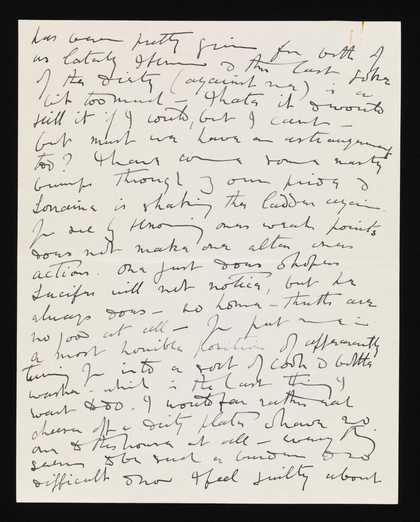 has been pretty grim for both of
us lately Henri & this last joke
of the Deity (against me) is a
bit too much — I hate it & would
sell it if I could, but I cant —
but must we have an estrangement
too? I have come some nasty
bumps through my own pride &
Lorraine is shaking the ladder again.
You see knowing ones weak points
does not make one alter ones
actions. One just does & hopes
Lucifer will not notice, but he
always does — no home-truths are
no good at all — You put me in
a most horrible position of apparently
turning you into a sort of cook & bottle
washer — which is the last thing I
want to do. I would far rather eat
cheese off a dirty plate & have no
one & the house at all — every thing
seems to be such a burden & so
difficult & now I feel guilty about